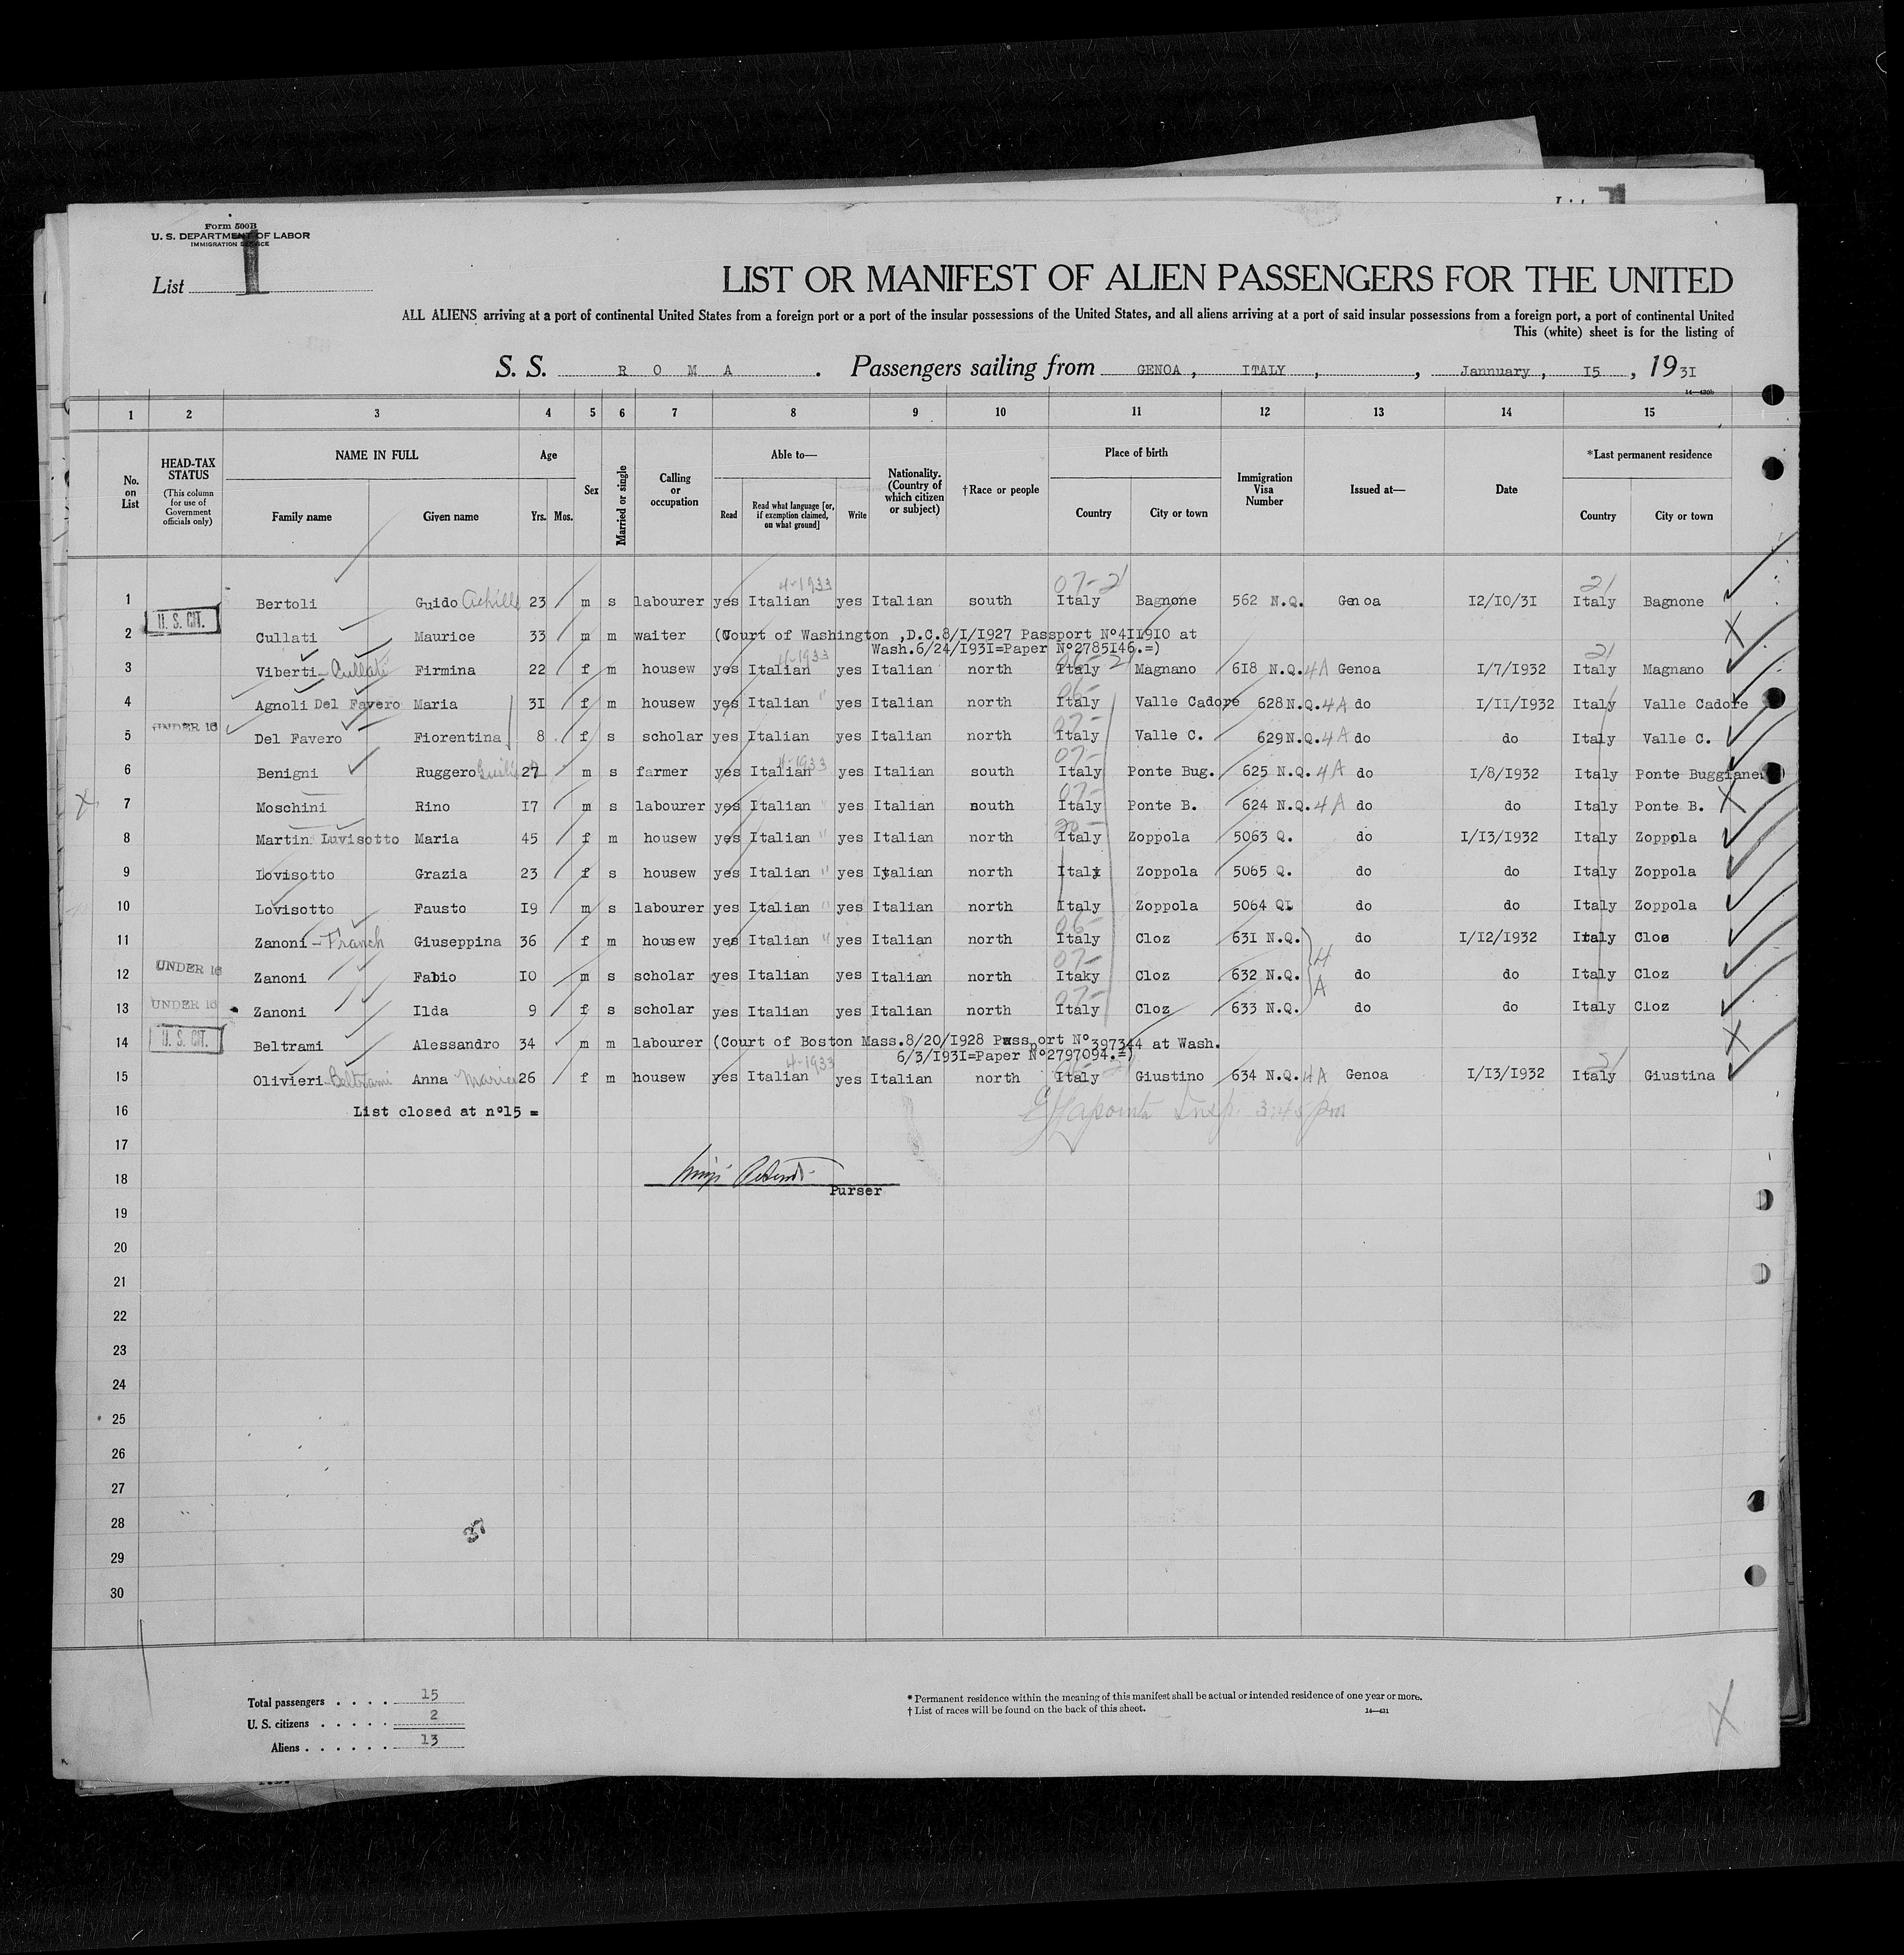 Form 500B
U. S. DEPARTMENT OF LABOR
IMMIGRATION SERVICE
List 1
LIST OR MANIFEST OF ALIEN PASSENGERS FOR THE UNITED
ALL ALIENS arriving at a port of continental United States from a foreign port or a port of the insular possessions of the United States, and all aliens arriving at a port of said insular possessions from a foreign port, a port of continental United
This (white) sheet is for the listing of
S. S. R O M A . Passengers sailing from GENOA , ITALY , , Jannuary , I5 , 19 3I
14—430b
1 2 3 4 5 6 7 8 9 10 11 12 13 14 15
No. on List
HEAD-TAX STATUS (This column for use of Government officials only)
NAME IN FULL Family name Given name
Age Yrs. Mos.
Sex
Married or single
Calling or occupation
Able to— Read Read what language [or, if exemption claimed, on what ground] Write
Nationality. (Country of which citizen or subject)
†Race or people
Place of birth Country City or town
Immigration Visa Number
Issued at—
Date
*Last permanent residence Country City or town
4-1933 07-21 21
1 Bertoli Guido Achille 23 m s labourer yes Italian yes Italian south Italy Bagnone 562 N.Q. Genoa I2/I0/3I Italy Bagnone
U. S. CIT.
2 Cullati Maurice 33 m m waiter (Court of Washington ,D.C.8/I/I927 Passport Nº4II9I0 at
Wash.6/24/I93I=Paper Nº2785I46.=)
4-1933 21
3 Viberti-Cullati Firmina 22 f m housew yes Italian yes Italian north Italy Magnano 6I8 N.Q. 4A Genoa I/7/I932 Italy Magnano
06-
4 Agnoli Del Favero Maria 3I f m housew yes Italian " yes Italian north Italy Valle Cadore 628N.Q. 4A do I/II/I932 Italy Valle Cadore
07-
5 UNDER 16 Del Favero Fiorentina 8 f s scholar yes Italian yes Italian north Italy Valle C. 629N.Q. 4A do do Italy Valle C.
4-1933 07-
6 Benigni Ruggero 27 m s farmer yes Italian yes Italian south Italy Ponte Bug. 625 N.Q. 4A do I/8/I932 Italy Ponte Buggiane
07-
7 Moschini Rino I7 m s labourer yes Italian " yes Italian south Italy Ponte B. 624 N.Q. 4A do do Italy Ponte B.
8 Martin Luvisotto Maria 45 f m housew yes Italian " yes Italian north Italy Zoppola 5063 Q. do I/I3/I932 Italy Zoppola
9 Lovisotto Grazia 23 f s housew yes Italian " yes Italian north Italy Zoppola 5065 Q. do do Italy Zoppola
10 Lovisotto Fausto I9 m s labourer yes Italian " yes Italian north Italy Zoppola 5064 Q. do do Italy Zoppola
06-
11 Zanoni-Franch Giuseppina 36 f m housew yes Italian " yes Italian north Italy Cloz 63I N.Q. do I/I2/I932 Italy Cloz
07- 4
12 UNDER 16 Zanoni Fabio I0 m s scholar yes Italian yes Italian north Itaky Cloz 632 N.Q. A do do Italy Cloz
07-
13 UNDER 16 Zanoni Ilda 9 f s scholar yes Italian yes Italian north Italy Cloz 633 N.Q. do do Italy Cloz
U. S. CIT.
14 Beltrami Alessandro 34 m m labourer (Court of Boston Mass.8/20/I928 Passport Nº397344 at Wash.
6/3/I93I=Paper Nº2797094.=)
4-1933 21
15 Olivieri Beltrami Anna Maria 26 f m housew yes Italian yes Italian north Italy Giustino 634 N.Q. 4A Genoa I/I3/I932 Italy Giustina
16 List closed at nº15 =
Insp. 3:45 pm
17
18
Purser
19
20
21
22
23
24
25
26
27
28
37
29
30
Total passengers . . . . 15
U. S. citizens . . . . . 2
Aliens . . . . . . 13
* Permanent residence within the meaning of this manifest shall be actual or intended residence of one year or more.
† List of races will be found on the back of this sheet.
14—431